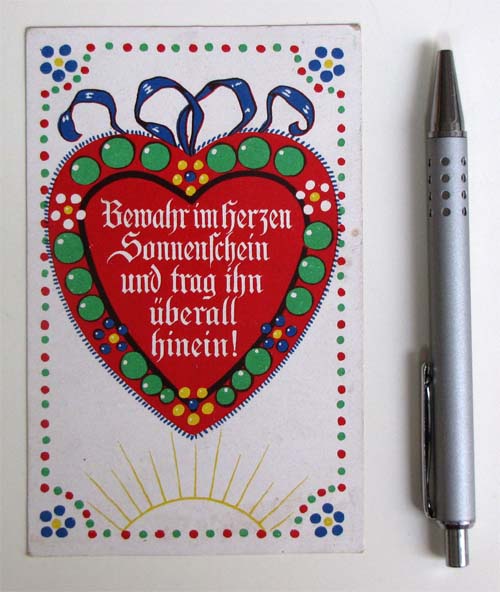 Bewahr im Herzen
Sonnenschein
und trag ihn
überall
hinein!